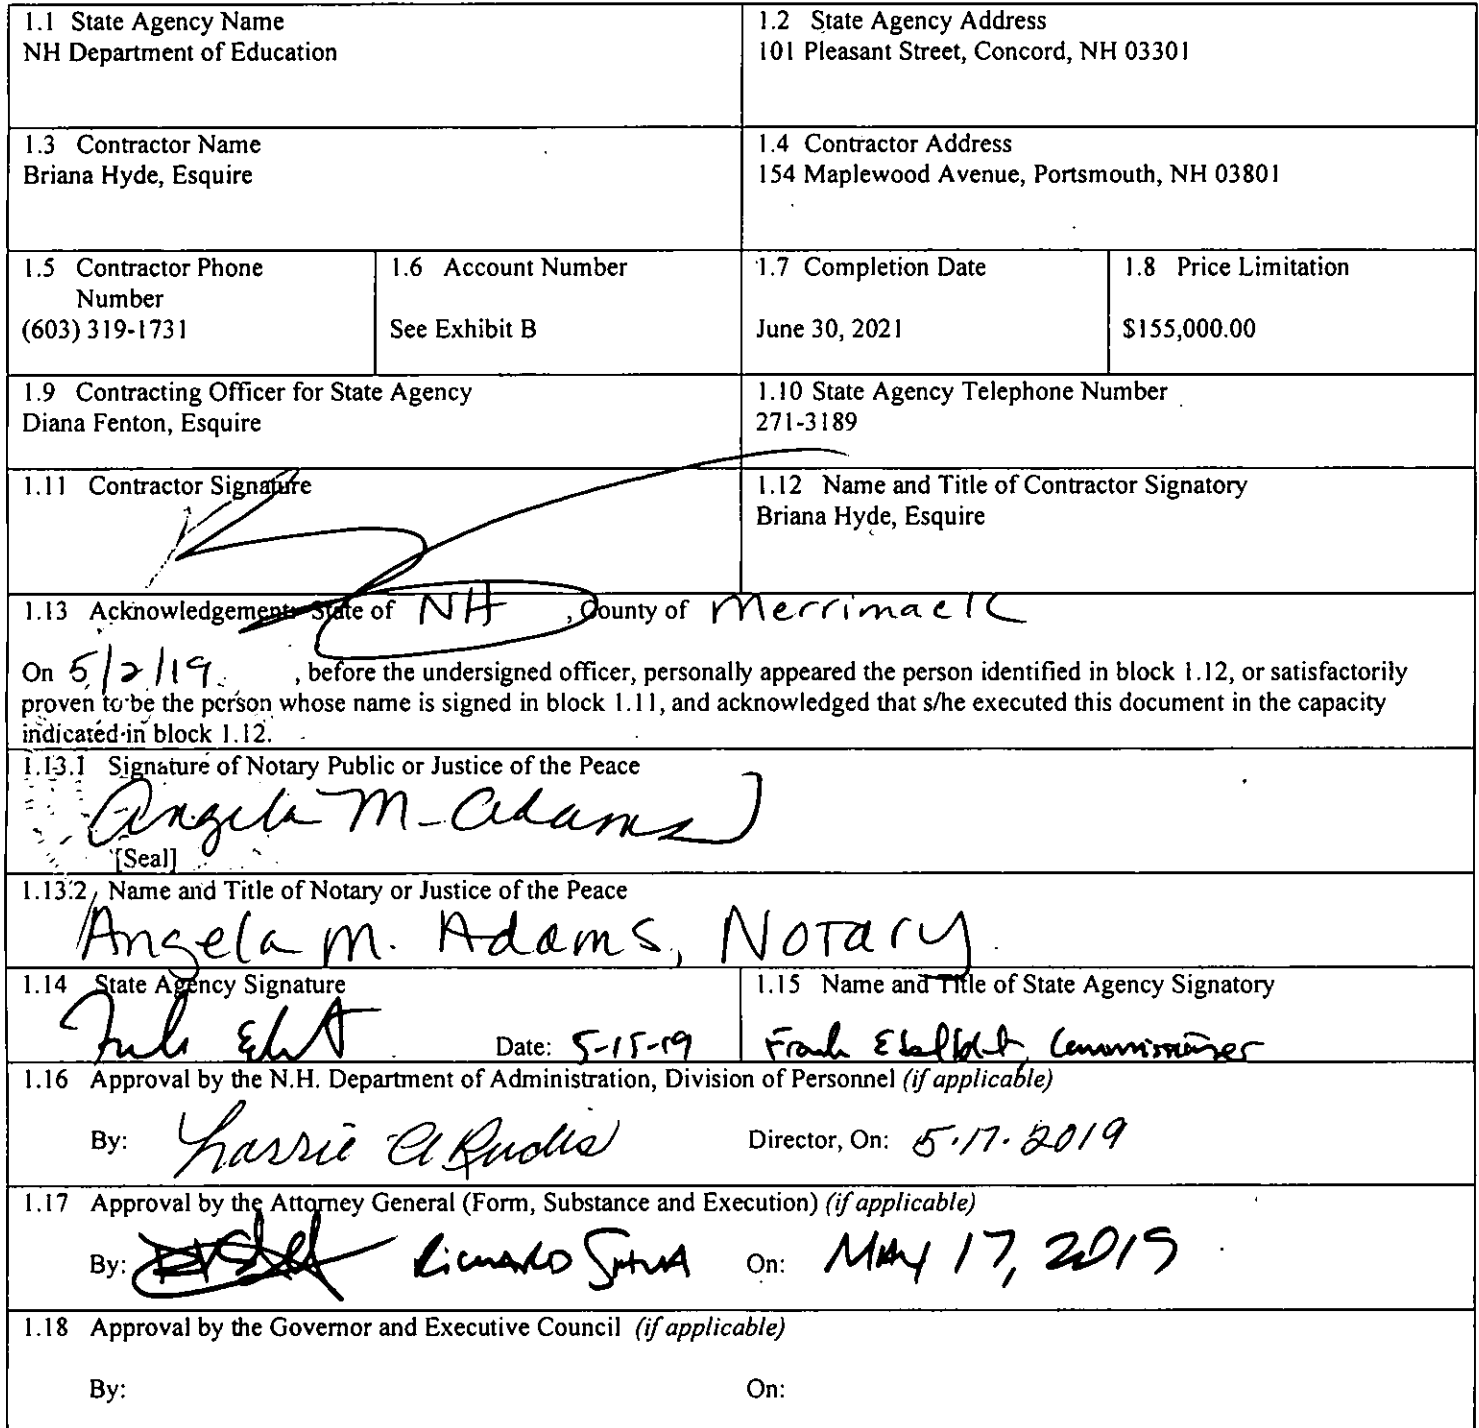 1.1 State Agency Name
NH Department of Education
1.2 State Agency Address
101 Pleasant Street, Concord, NH 03301
1.3 Contractor Name
Briana Hyde, Esquire
1.4 Contractor Address
154 Maplewood Avenue, Portsmouth, NH 03801
1.5 Contractor Phone
Number
(603) 319-1731
1.6 Account Number
See Exhibit B
1.7 Completion Date
June 30, 2021
1.8 Price Limitation
$155,000.00
1.9 Contracting Officer for State Agency
Diana Fenton, Esquire
1.10 State Agency Telephone Number
271-3189
1.11 Contractor Signature
1.12 Name and Title of Contractor Signatory
Briana Hyde, Esquire
1.13 Acknowledgement: State of NH , County of Merrimack
On 5/2/19 , before the undersigned officer, personally appeared the person identified in block 1.12, or satisfactorily
proven to be the person whose name is signed in block 1.11, and acknowledged that s/he executed this document in the capacity
indicated in block 1.12.
1.13.1 Signature of Notary Public or Justice of the Peace
Angela M. Adams
[Seal]
1.13.2 Name and Title of Notary or Justice of the Peace
Angela M. Adams, Notary
1.14 State Agency Signature
Date: 5-15-19
1.15 Name and Title of State Agency Signatory
Frank Commissioner
1.16 Approval by the N.H. Department of Administration, Division of Personnel (if applicable)
By: Director, On: 5.17.2019
1.17 Approval by the Attorney General (Form, Substance and Execution) (if applicable)
By: On: May 17, 2019
1.18 Approval by the Governor and Executive Council (if applicable)
By: On: